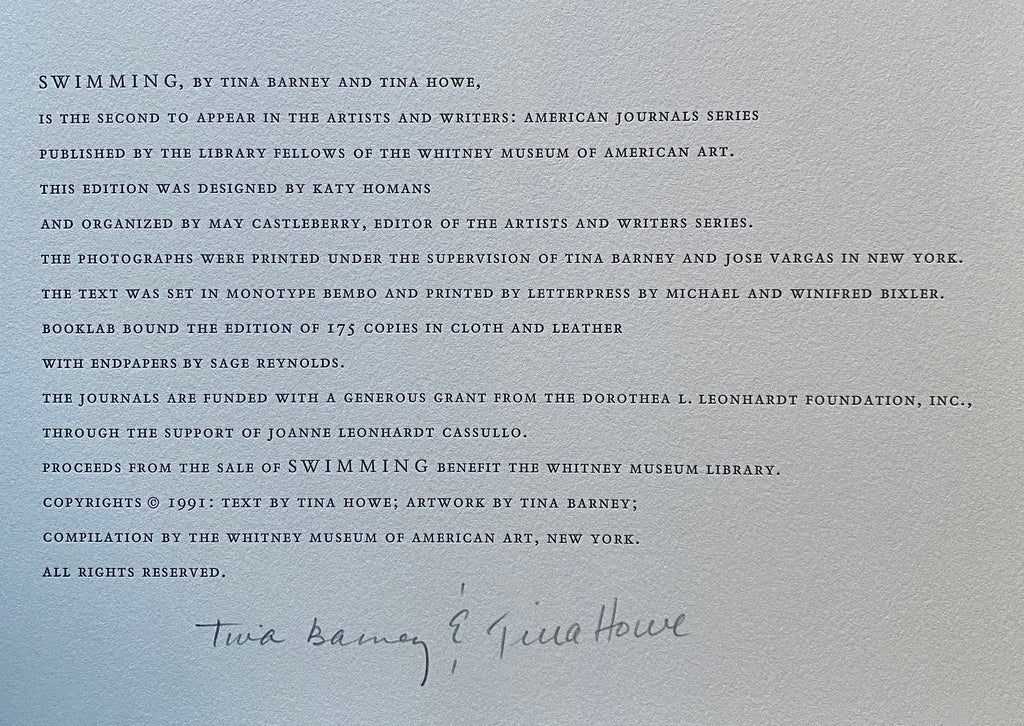 SWIMMING, BY TINA BARNEY AND TINA HOWE,
IS THE SECOND TO APPEAR IN THE ARTISTS AND WRITERS: AMERICAN JOURNALS SERIES
PUBLISHED BY THE LIBRARY FELLOWS OF THE WHITNEY MUSEUM OF AMERICAN ART.
THIS EDITION WAS DESIGNED BY KATY HOMANS
AND ORGANIZED BY MAY CASTLEBERRY, EDITOR OF THE ARTISTS AND WRITERS SERIES.
THE PHOTOGRAPHS WERE PRINTED UNDER THE SUPERVISION OF TINA BARNEY AND JOSE VARGAS IN NEW YORK.
THE TEXT WAS SET IN MONOTYPE BEMBO AND PRINTED BY LETTERPRESS BY MICHAEL AND WINIFRED BIXLER.
BOOKLAB BOUND THE EDITION OF 175 COPIES IN CLOTH AND LEATHER
WITH ENDPAPERS BY SAGE REYNOLDS.
THE JOURNALS ARE FUNDED WITH A GENEROUS GRANT FROM THE DOROTHEA L. LEONHARDT FOUNDATION, INC.,
THROUGH THE SUPPORT OF JOANNE LEONHARDT CASSULLO.
PROCEEDS FROM THE SALE OF SWIMMING BENEFIT THE WHITNEY MUSEUM LIBRARY.
COPYRIGHTS © 1991: TEXT BY TINA HOWE; ARTWORK BY TINA BARNEY;
COMPILATION BY THE WHITNEY MUSEUM OF AMERICAN ART, NEW YORK.
ALL RIGHTS RESERVED.
Tina Barney & Tina Howe